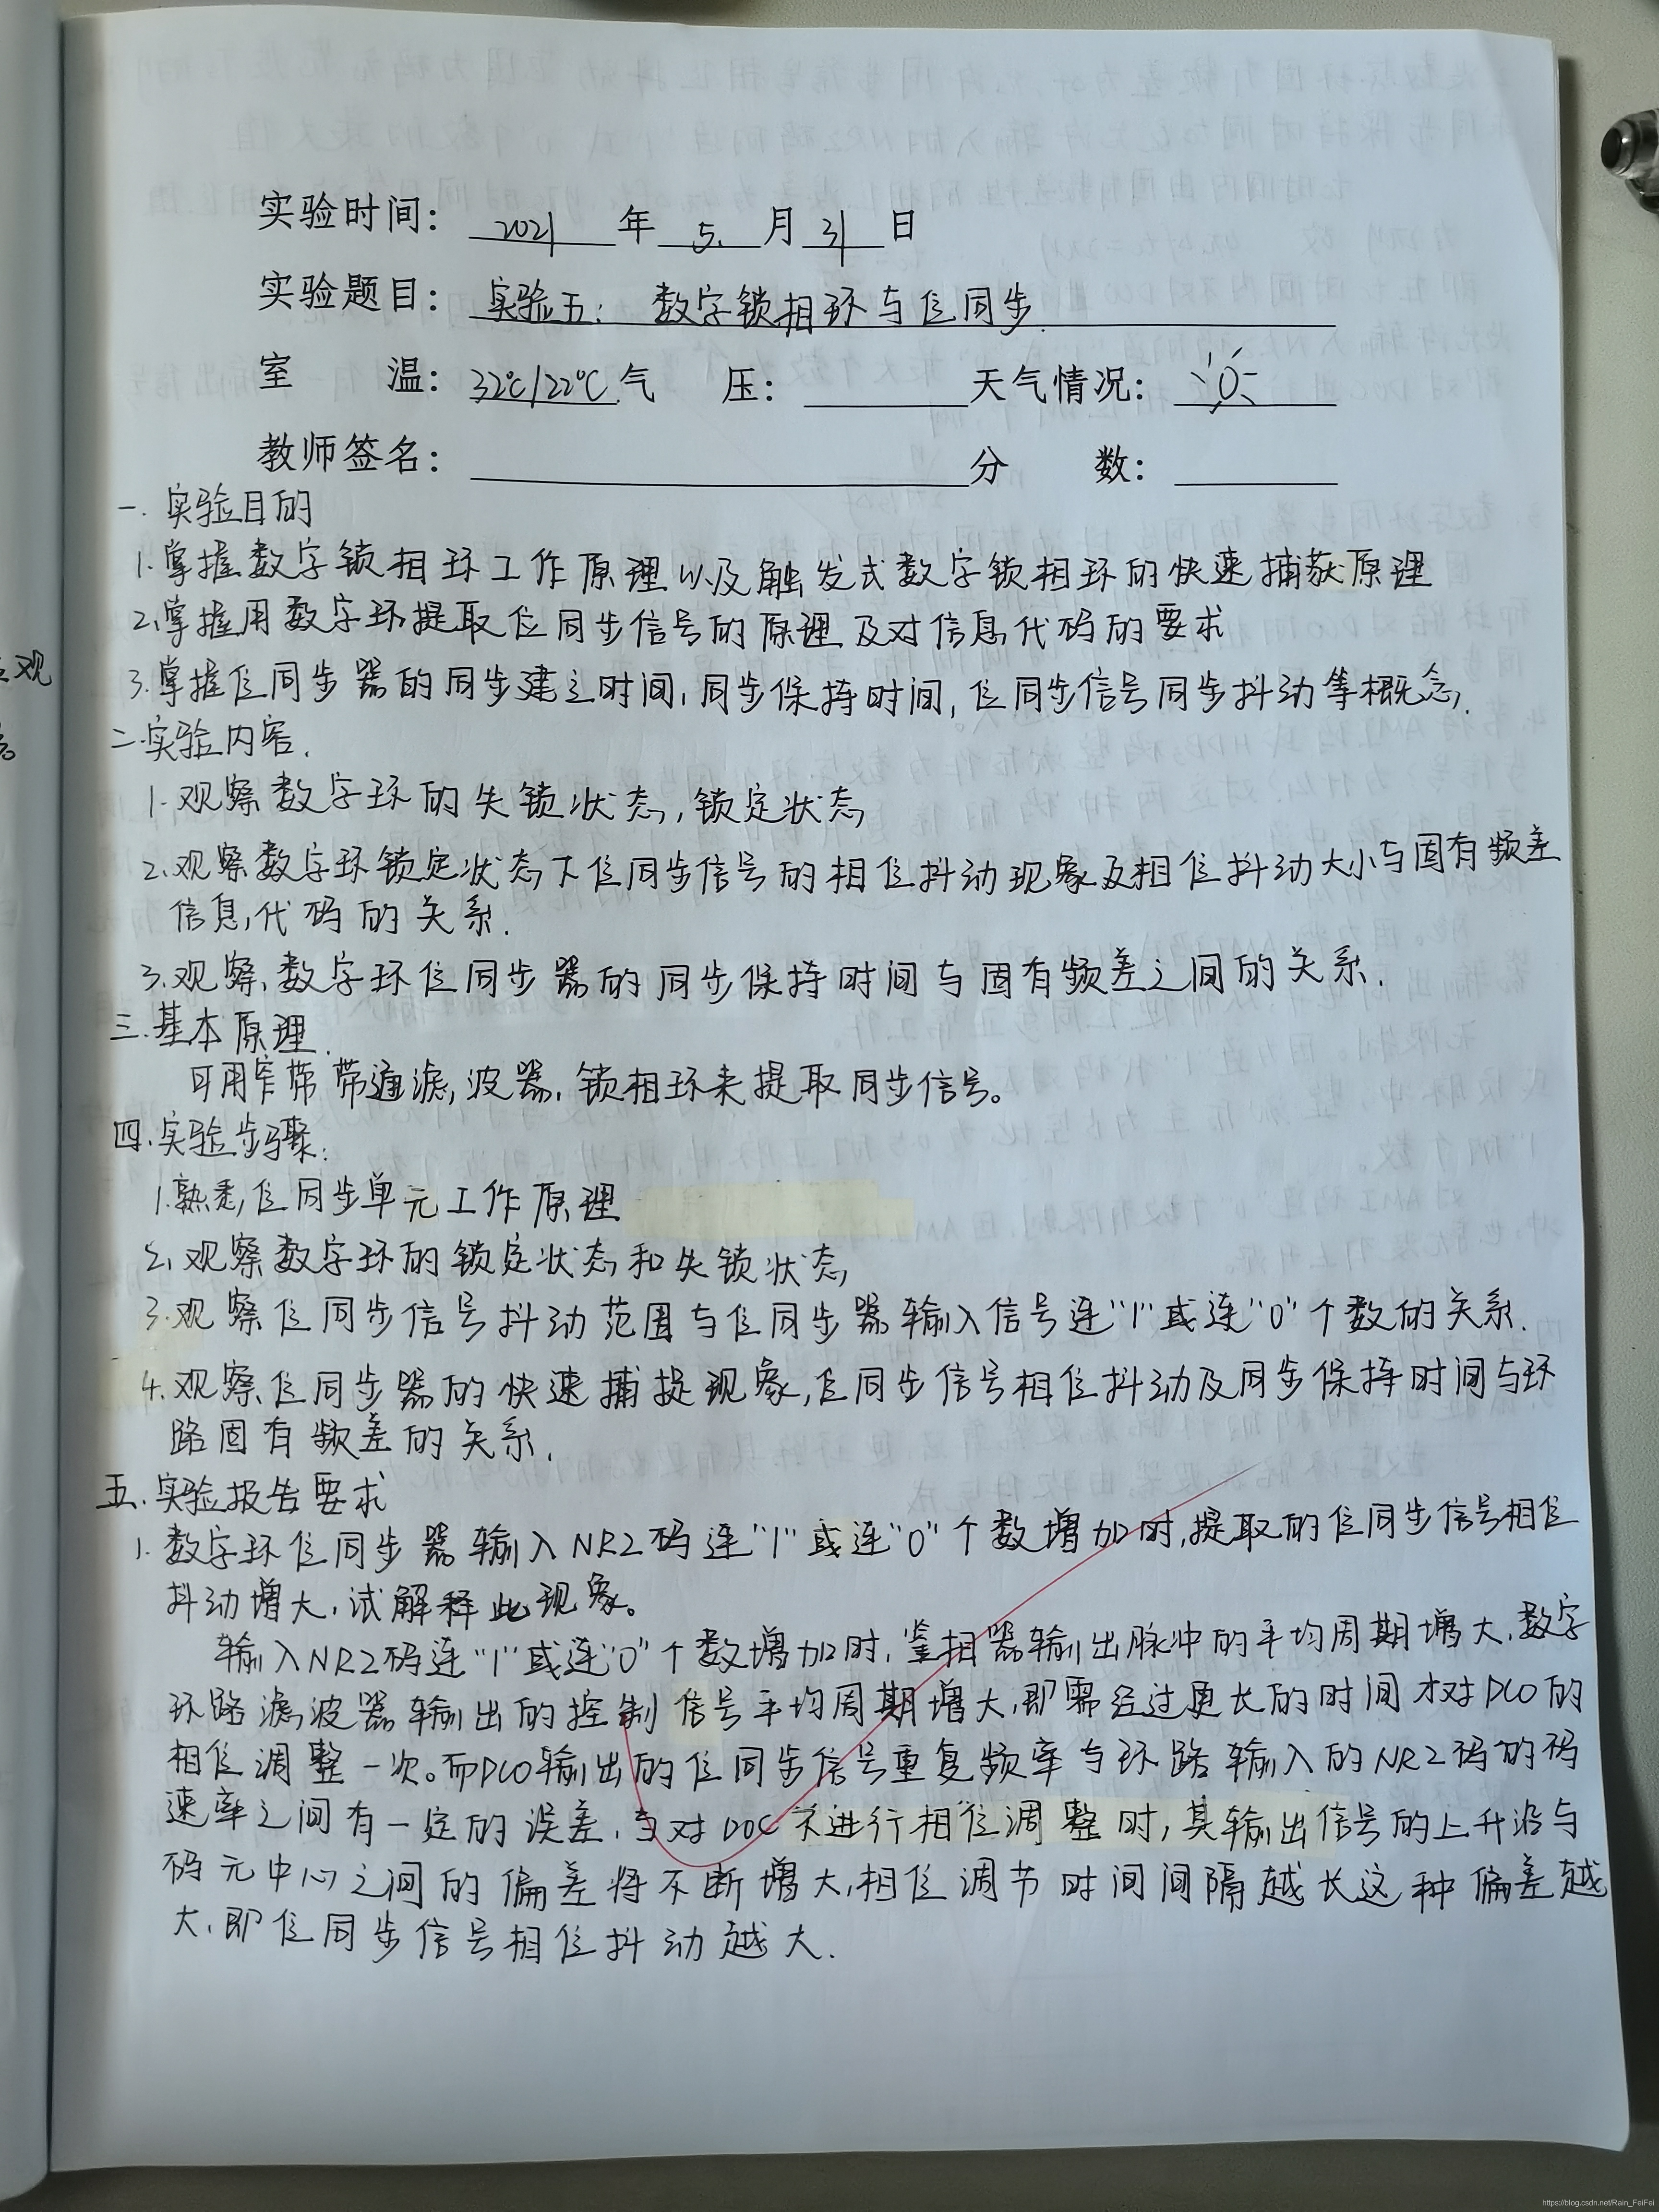 实验时间： 2021 年 5. 月 31 日
实验题目： 实验五： 数字锁相环与位同步
室 温： 32℃/22℃ 气 压： 天气情况：
教师签名： 分 数：
一. 实验目的
1. 掌握数字锁相环工作原理以及触发式数字锁相环的快速捕获原理
2. 掌握用数字环提取位同步信号的原理及对信息代码的要求
3. 掌握位同步器的同步建立时间，同步保持时间，位同步信号同步抖动等概念.
二. 实验内容.
1. 观察数字环的失锁状态，锁定状态
2. 观察数字环锁定状态下位同步信号的相位抖动现象及相位抖动大小与固有频差
信息代码的关系.
3. 观察数字环位同步器的同步保持时间与固有频差之间的关系.
三. 基本原理.
可用窄带带通滤波器，锁相环来提取同步信号。
四. 实验步骤：
1. 熟悉位同步单元工作原理
2. 观察数字环的锁定状态和失锁状态
3. 观察位同步信号抖动范围与位同步器输入信号连“1”或连“0”个数的关系.
4. 观察位同步器的快速捕捉现象，位同步信号相位抖动及同步保持时间与环
路固有频差的关系.
五. 实验报告要求
1. 数字环位同步器输入NRZ码连“1”或连“0”个数增加时，提取的位同步信号相位
抖动增大，试解释此现象。
输入NRZ码连“1”或连“0”个数增加时，鉴相器输出脉冲的平均周期增大，数字
环路滤波器输出的控制信号平均周期增大，即需经过更长的时间才对DCO的
相位调整一次。而DCO输出的位同步信号重复频率与环路输入的NRZ码的码
速率之间有一定的误差，当对DOC不进行相位调整时，其输出信号的上升沿与
码元中心之间的偏差将不断增大，相位调节时间间隔越长这种偏差越
大，即位同步信号相位抖动越大.
观
https://blog.csdn.net/Rain_FeiFei